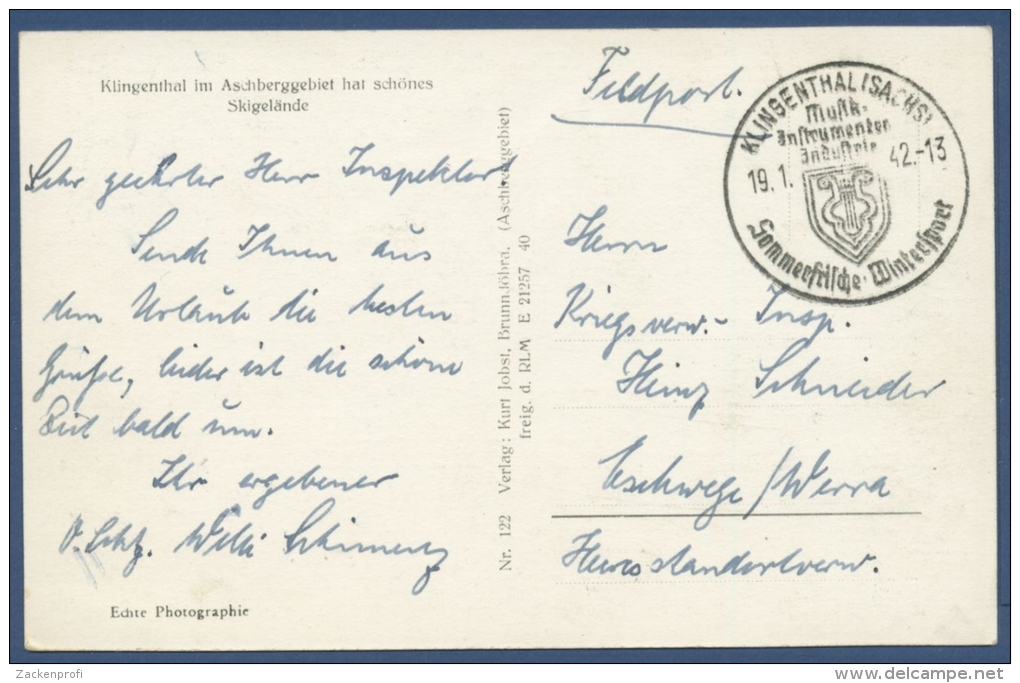 Klingenthal im Aschberggebiet hat schönes
Skigelände
Sehr geehrter Herr Inspektor
Sende Ihnen aus
dem Urlaub die besten
Grüße, leider ist die schöne
Zeit bald um.
Ihr ergebener
O.Schtz. Willi
Echte Photographie
Nr. 122 Verlag: Kurt Jobst, Brunndöbra. (Aschberggebiet)
freig. d. RLM E 21257 40
Feldpost.
KLINGENTHAL (SACHS)
Musik-
Instrumenten
Industrie
19.1. 42.-13
Sommerfrische · Wintersport
Herrn
Kriegsverw.- Insp.
Heinz Schneider
Eschwege/Werra
Heeresstandortverw.
Zackenprofi
www.delcampe.net